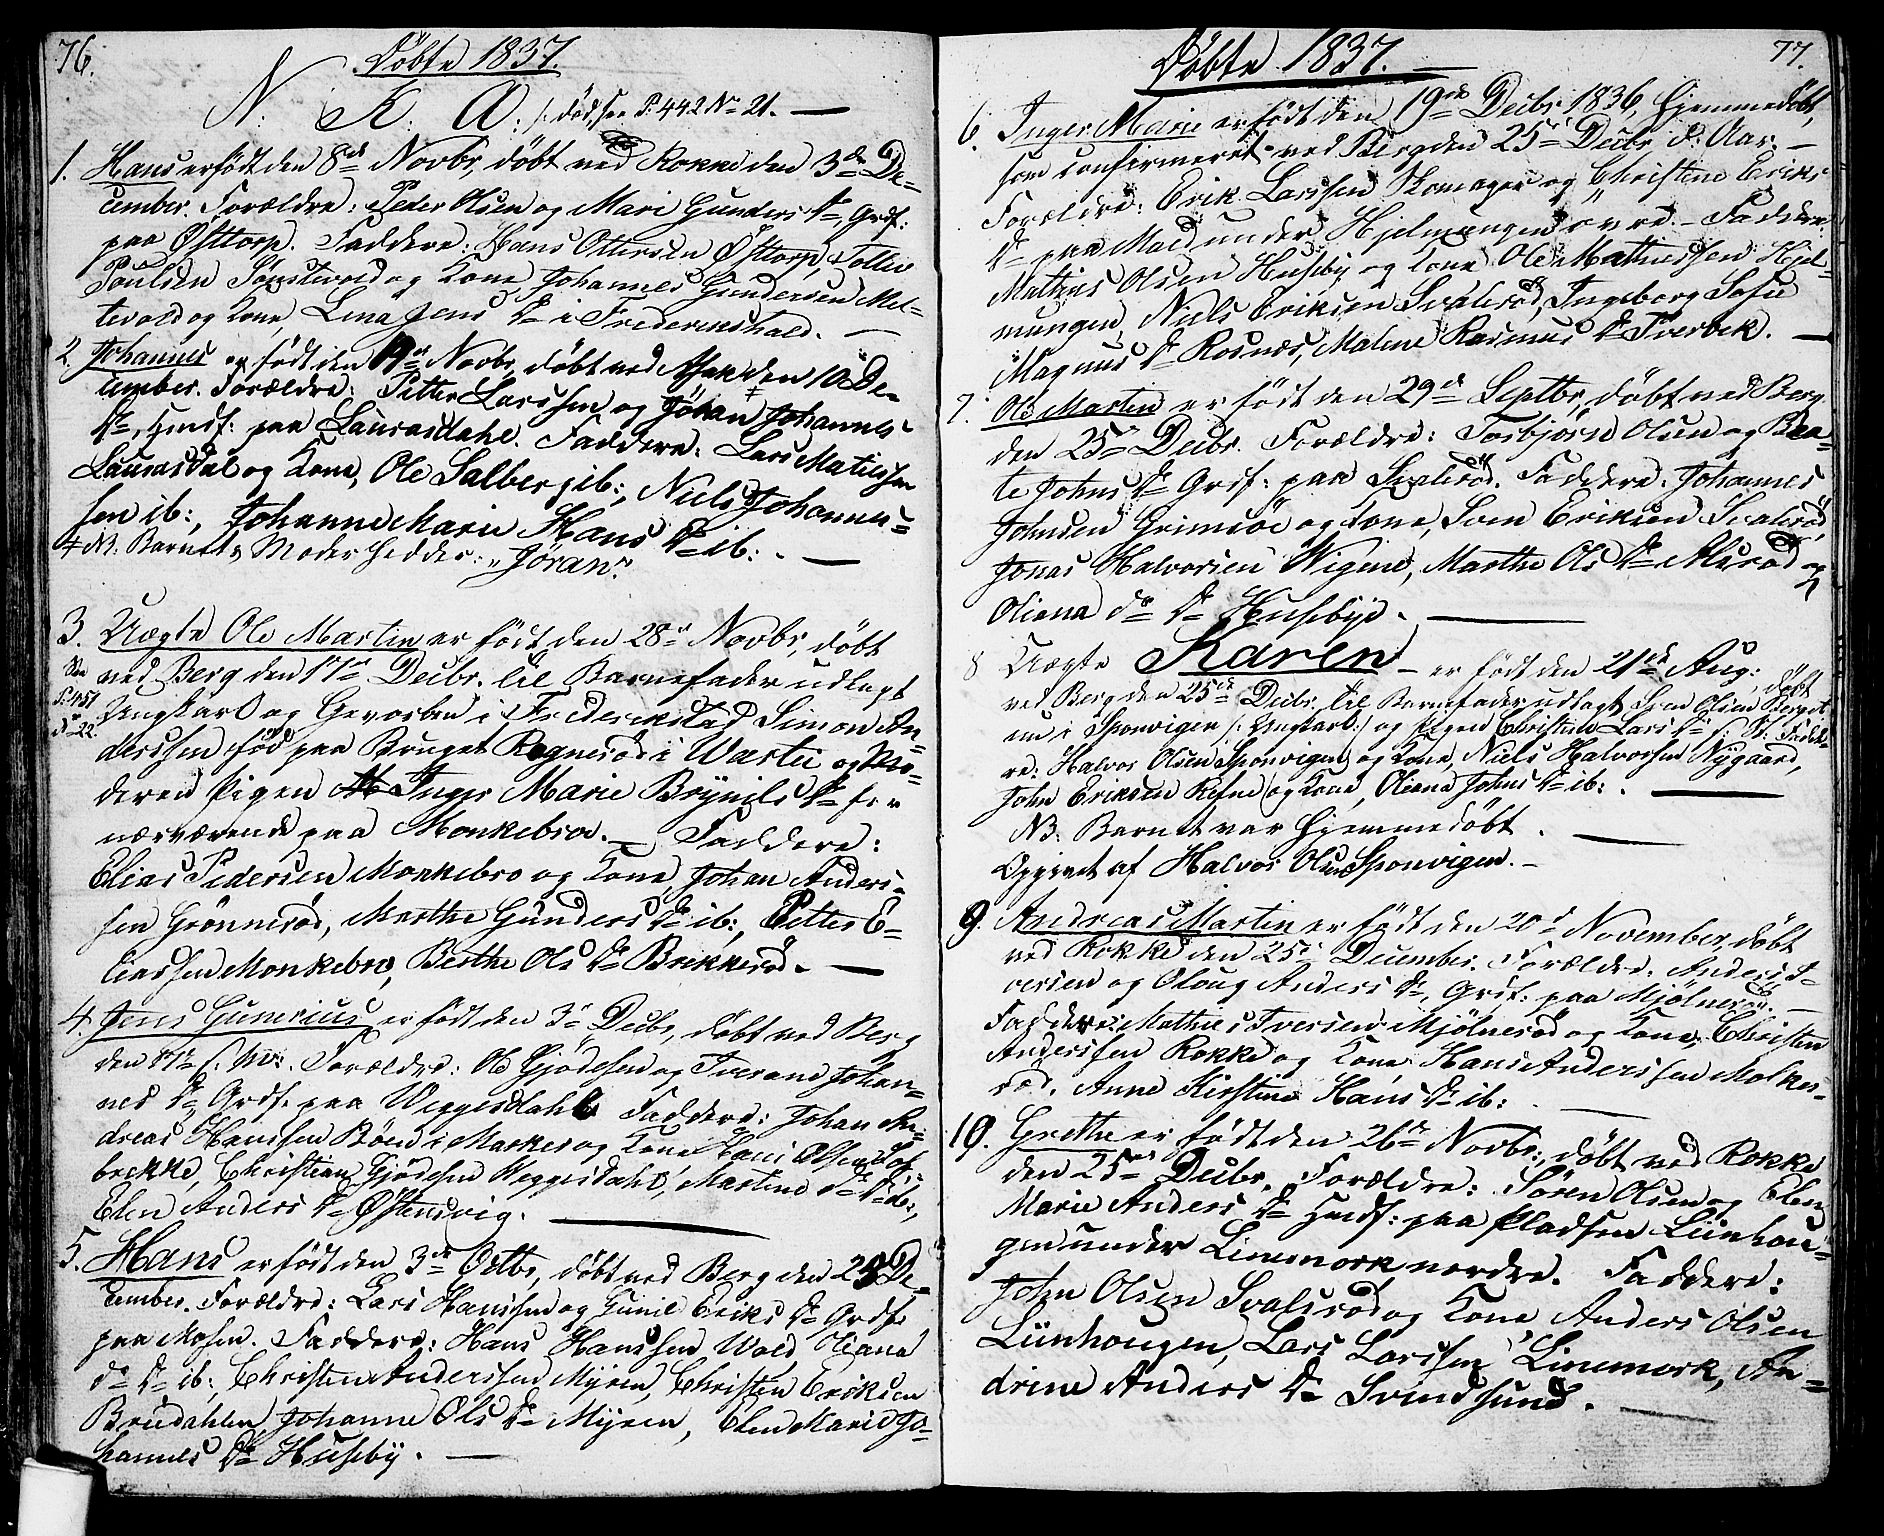 76.
Döbte 1837.
N. K. A. /: död, see P. 442 No 21. —
1. Hans er födt den 8de Novbr, döbt ved Rokke den 3die De-
cember. Forældre: Peder Olsen og Mari Gunders Dr, Grdf:
paa Östtorp. Faddere: Hans Ottersen Östtorp, Tollev
Poulsen Tonstevold og Kone, Johannes Gundersen Mel-
tevold og Kone, Lena Jens Dr i Frederikshald. —
2. Johannes er födt den 19de Novbr, döbt ved Asak den 10de De-
cember. Forældre: Petter Larssen og Jöhan + Johannes
Dr, Huusf: paa Laurasdahl. Faddere: Lars Mathissen
Laurasdal og Kone, Ole Salberg ib:, Niels Johannes-
sen ib:, Johanne Marie Hans Dr ib: —
+ NB. Barnets Moder hedder: "Jöran".
3. Uægte Ole Martin er födt den 28de Novbr, döbt
ved Berg den 17de Decbr. Til Barnefader udlagt
See P. 451 No 22.
Ungkarl og Gevorben i Frederikstad Simon An-
derssen föd paa Bruget Rogneröd i Warteig og Mo-
deren Pigen Inger Marie Brynils Dr for
nærværende paa Monkebroe. — Faddere:
Elias Pedersen Monkebro og Kone, Johan Anders-
sen Grönneröd, Marthe Gunders Dr ib:, Petter E-
liassen Monkebro, Berthe Ols Dr Brekkeröd. —
4. Jens Gunerius er födt den 3die Decbr, döbt ved Berg
den 17de s. M. Forældre: Ole Gjödesen og Iverane Johan-
nes Dr, Grdf. paa Weggesdahl. Faddere: Johan An-
dreas Hanssen Böen i Marker og Kone, Hans Olssen
brekke, Christian Gjödesen Weggesdahl, Martine do Dr ib:,
Elen Anders Dr Östensvig. —
5. Hans er födt den 3die Octbr, döbt ved Berg den 23 De-
cember. Forældre: Lars Hanssen og Gunil Eriks Dr Grdf:
paa Mosen. Faddere: Hans Hanssen Wold, Oliana
do Dr ib:, Christen Anderssen Myren, Christen Eriksen
Brudahlen, Johanne Ols Dr Myren, Elen Marie Jo-
hannes Dr Huseby. —
77.
Döbte 1837. —
6. Inger Marie er födt den 19de Decbr 1836, hjemmedöbt,
som confirmeret ved Berg den 25de Decbr d: Aar. —
Forældre: Erik Larssen Skomager og Christine Eriks
Dr paa Moe under Hjelmungen övre. — Faddere:
Mathias Olsen Huseby og Kone, Ole Mathiessen Hjel-
mungen, Niels Eriksen Svaleröd, Ingeborg Sofie
Magnus Dr Rosnæs, Malene Rasmus Dr Tverbek. —
7. Ole Martin er födt den 29de Septbr, döbt ved Berg
den 25de Decbr. Forældre: Torbjörn Olsen og Bea-
te Johns Dr Grdf: paa Svaleröd. Faddere: Johannes
Johnsen Grimsöe og Kone, Sven Eriksen Svaleröd,
Jonas Halvorsen Wigene, Marthe Ols Dr og
Oliana do Dr Husebye. —
8 Uægte Karen — er födt den 21de Aug:, döbt
ved Berg den 25de Decbr. Til Barnefader udlagt Sven Olsen
en i Sponvigen /: Ungkarl :/ og Pigen Christine Lars Dr Fadde-
re: Halvor Olsen Sponvigen og Kone, Niels Halvorssen Nygaard,
John Eriksen Refne og Kone, Oleana Johns Dr ib: —
NB. Barnet var hjemmedöbt. —
Opgivet af Halvor Olsen Sponvigen. —
9. Andreas Martin er födt den 20de November, döbt
ved Rokke den 25de December. Forældre: Anders I-
versen og Oloug Anders Dr, Grdf: paa Mjölneröd. —
Faddere: Mathies Iversen Mjölneröd og Kone, Christen
Anderssen Rokke og Kone, Hans Anderssen Molke-
röd, Anne Kirstine Hans Dr ib: —
10. Grethe er födt den 26de Novbr:, döbt ved Rokke
den 25de Decbr. Forældre: Sören Olsen og Elen
Marie Anders Dr Huusf: paa Pladsen Lünhou-
gen under Linemork nordre. Faddere:
John Olsen Svalsröd og Kone, Anders Olsen
Lünhougen, Lars Larssen Linemork, An-
drine Anders Dr Svindsund. —